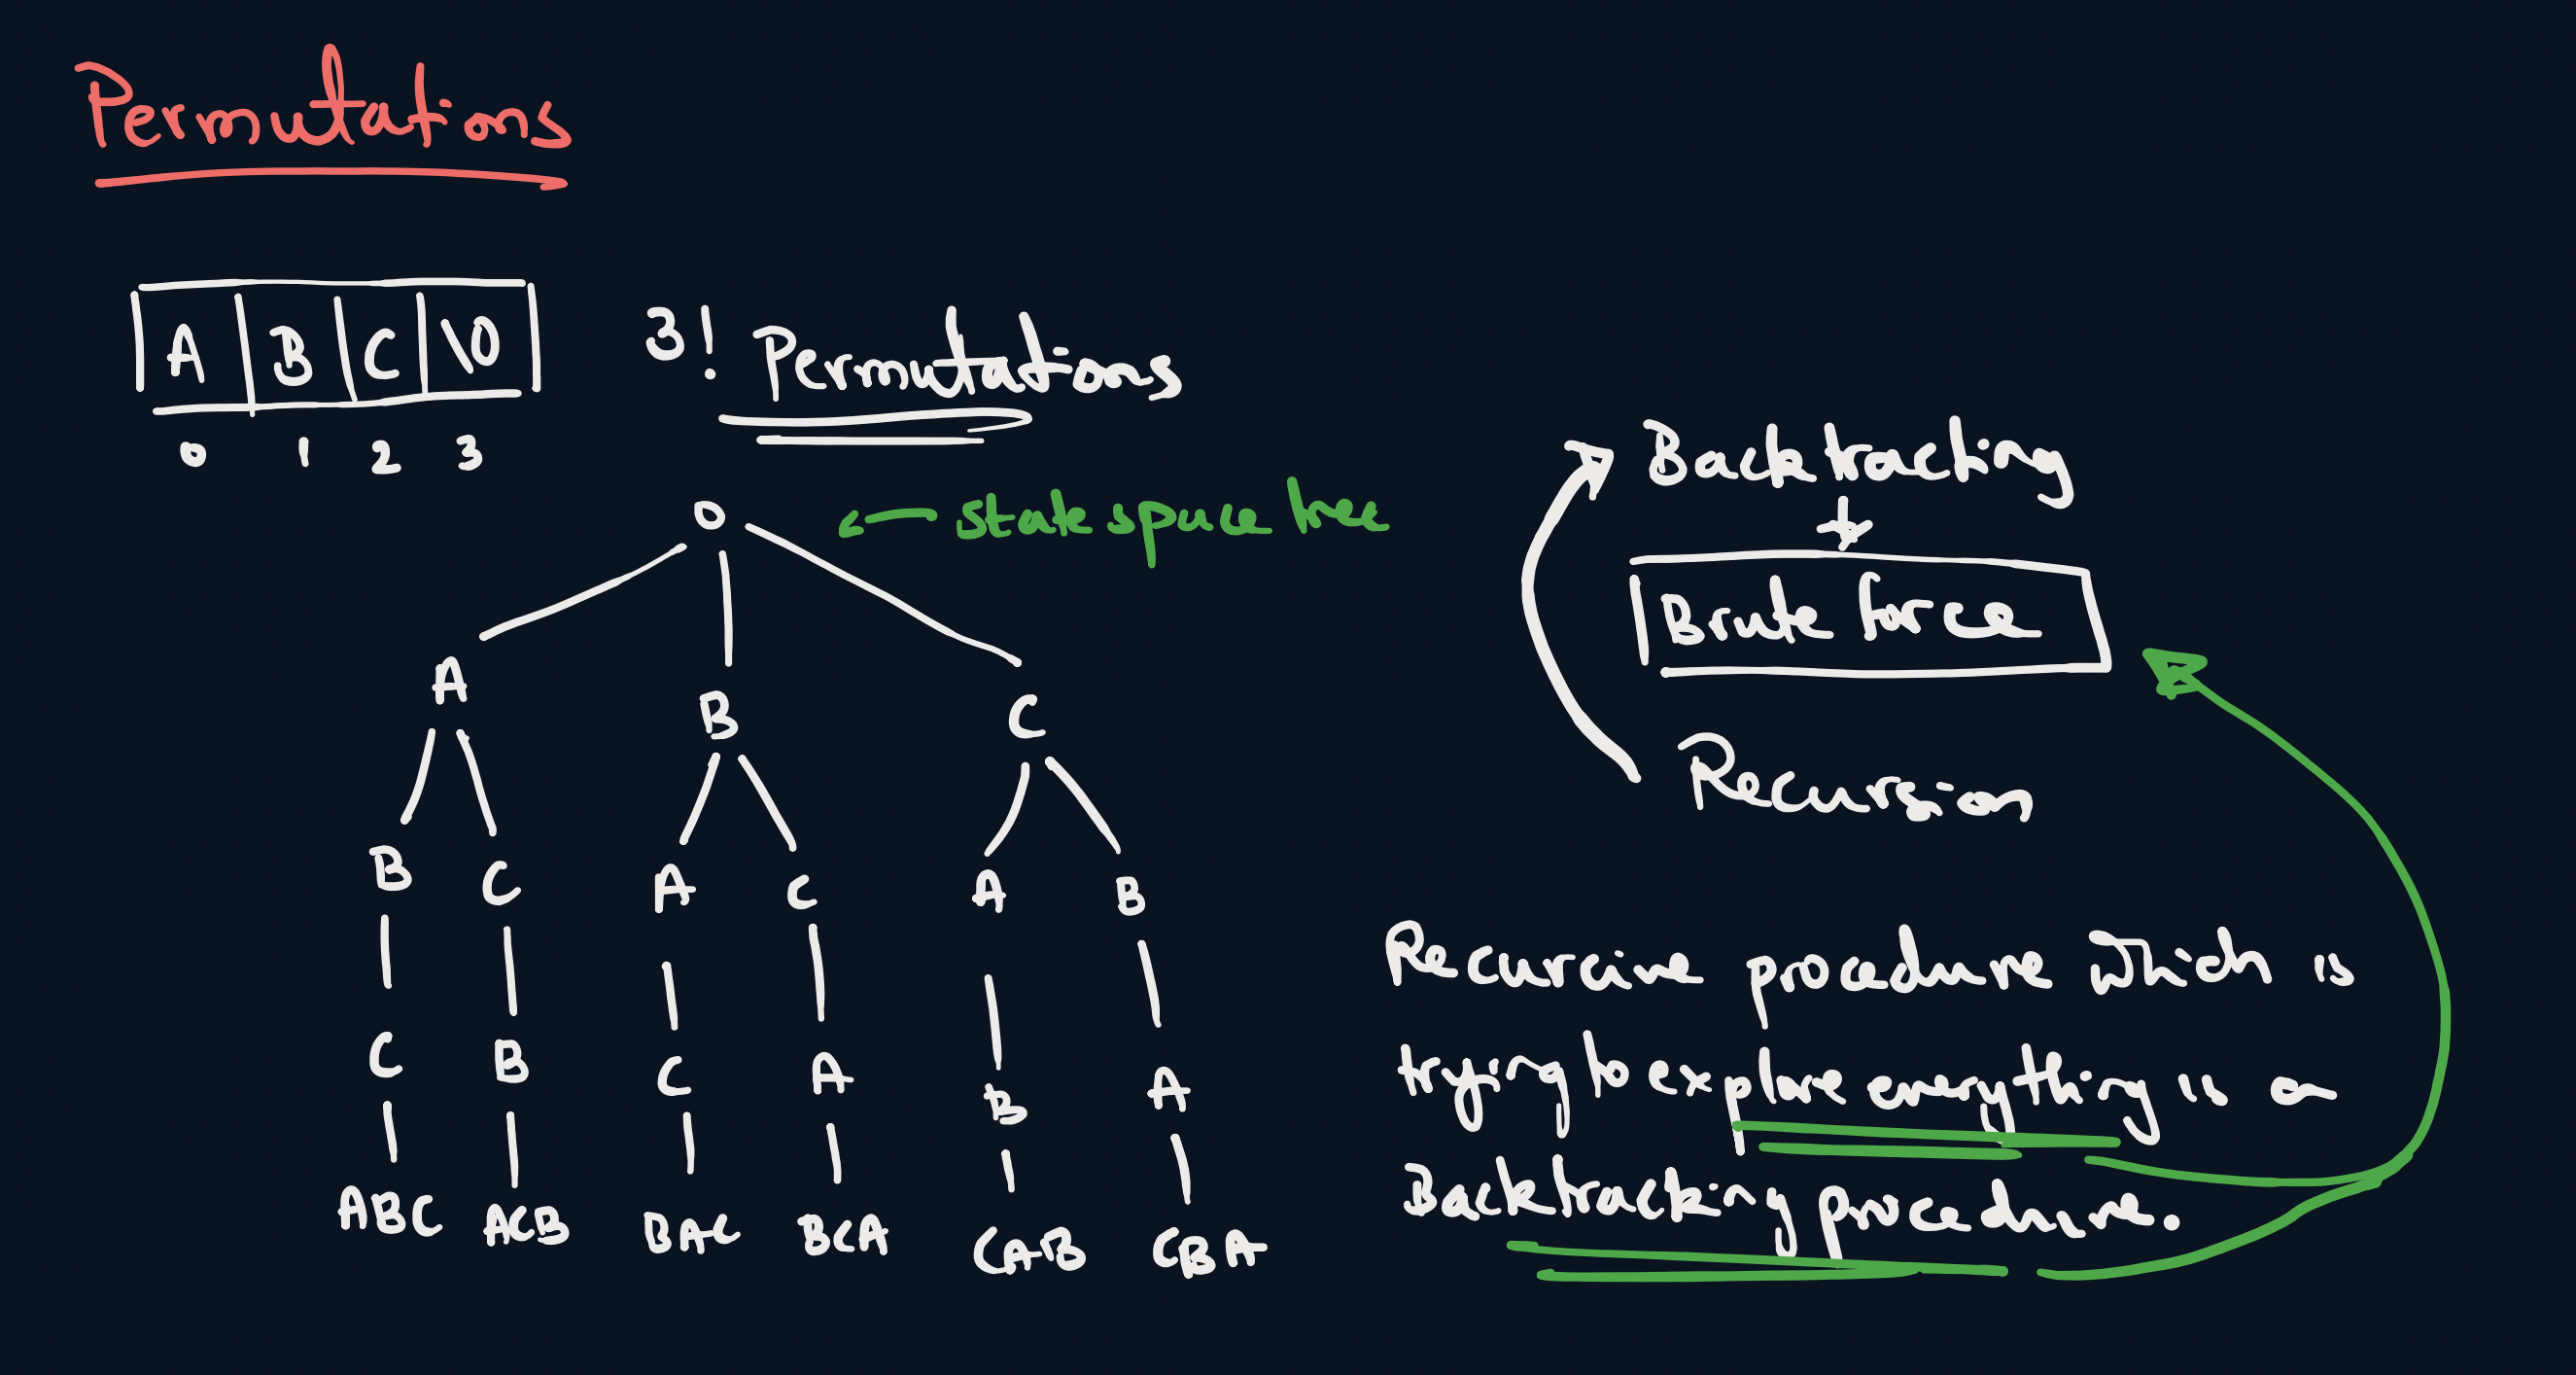 Permutations
A B C \0
0 1 2 3
3! Permutations
O
state space tree
A B C
B C A C A B
C B C A B A
ABC ACB BAC BCA CAB CBA
Backtracking
+
Brute force
Recursion
Recurcive procedure which is
trying to explore everything is a
Backtracking procedure.